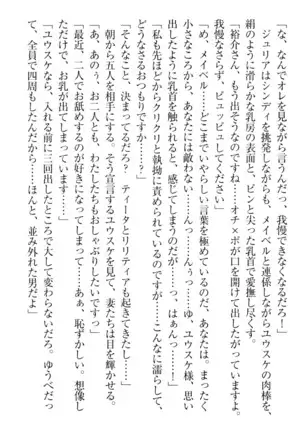 ながらオレを見ながら言うんだっ、我慢できなくなるだろ！」
ジュリアはシンディを挑発しながらも、メイベルと連係しながらユウスケの肉棒を、
絹のように滑らかな乳房の表面と、ピンと尖った乳首で愛撫し尽くす。
「裕介さん、もう出そうなのですね……オチ×ポが口を開けて出したがっていますよ。
我慢なさらず、ピュッピュしてください」
「め、メイベル……どこまでいやらしい言葉を極めているのだ、あなたは。まったく
小さなころから、あなたには敵わない……んっ……んぅっ……ゆ、ユウスケ様、思い
出したように乳首を触られると、感じてしまうのだが……っ、はぁんっ……！」
「私も先ほどからクリクリと執拗に責められているのですが……こんなに濡らして、
どうなさるおつもりですか……っ」
「そんなこと、決まってるだろ？　ティータとリリティアも起きてきたし……」
朝から五人を相手にする。そう宣言するユウスケを見て、妻たちは目を輝かせる。
「あ、あのぅ、お二人とも、わたしたちもおしゃぶりしたいですっ」
「最近、二人でお舐めするのが好きになってしまって……あぁ、恥ずかしい。想像し
ただけで、お乳が出てしまいます……」
「ユウスケなら、入れる前に三回出したところで大して変わらないだろ。ゆうべだっ
て、全員で四周もしたんだから……ほんと、並み外れた男だよ」